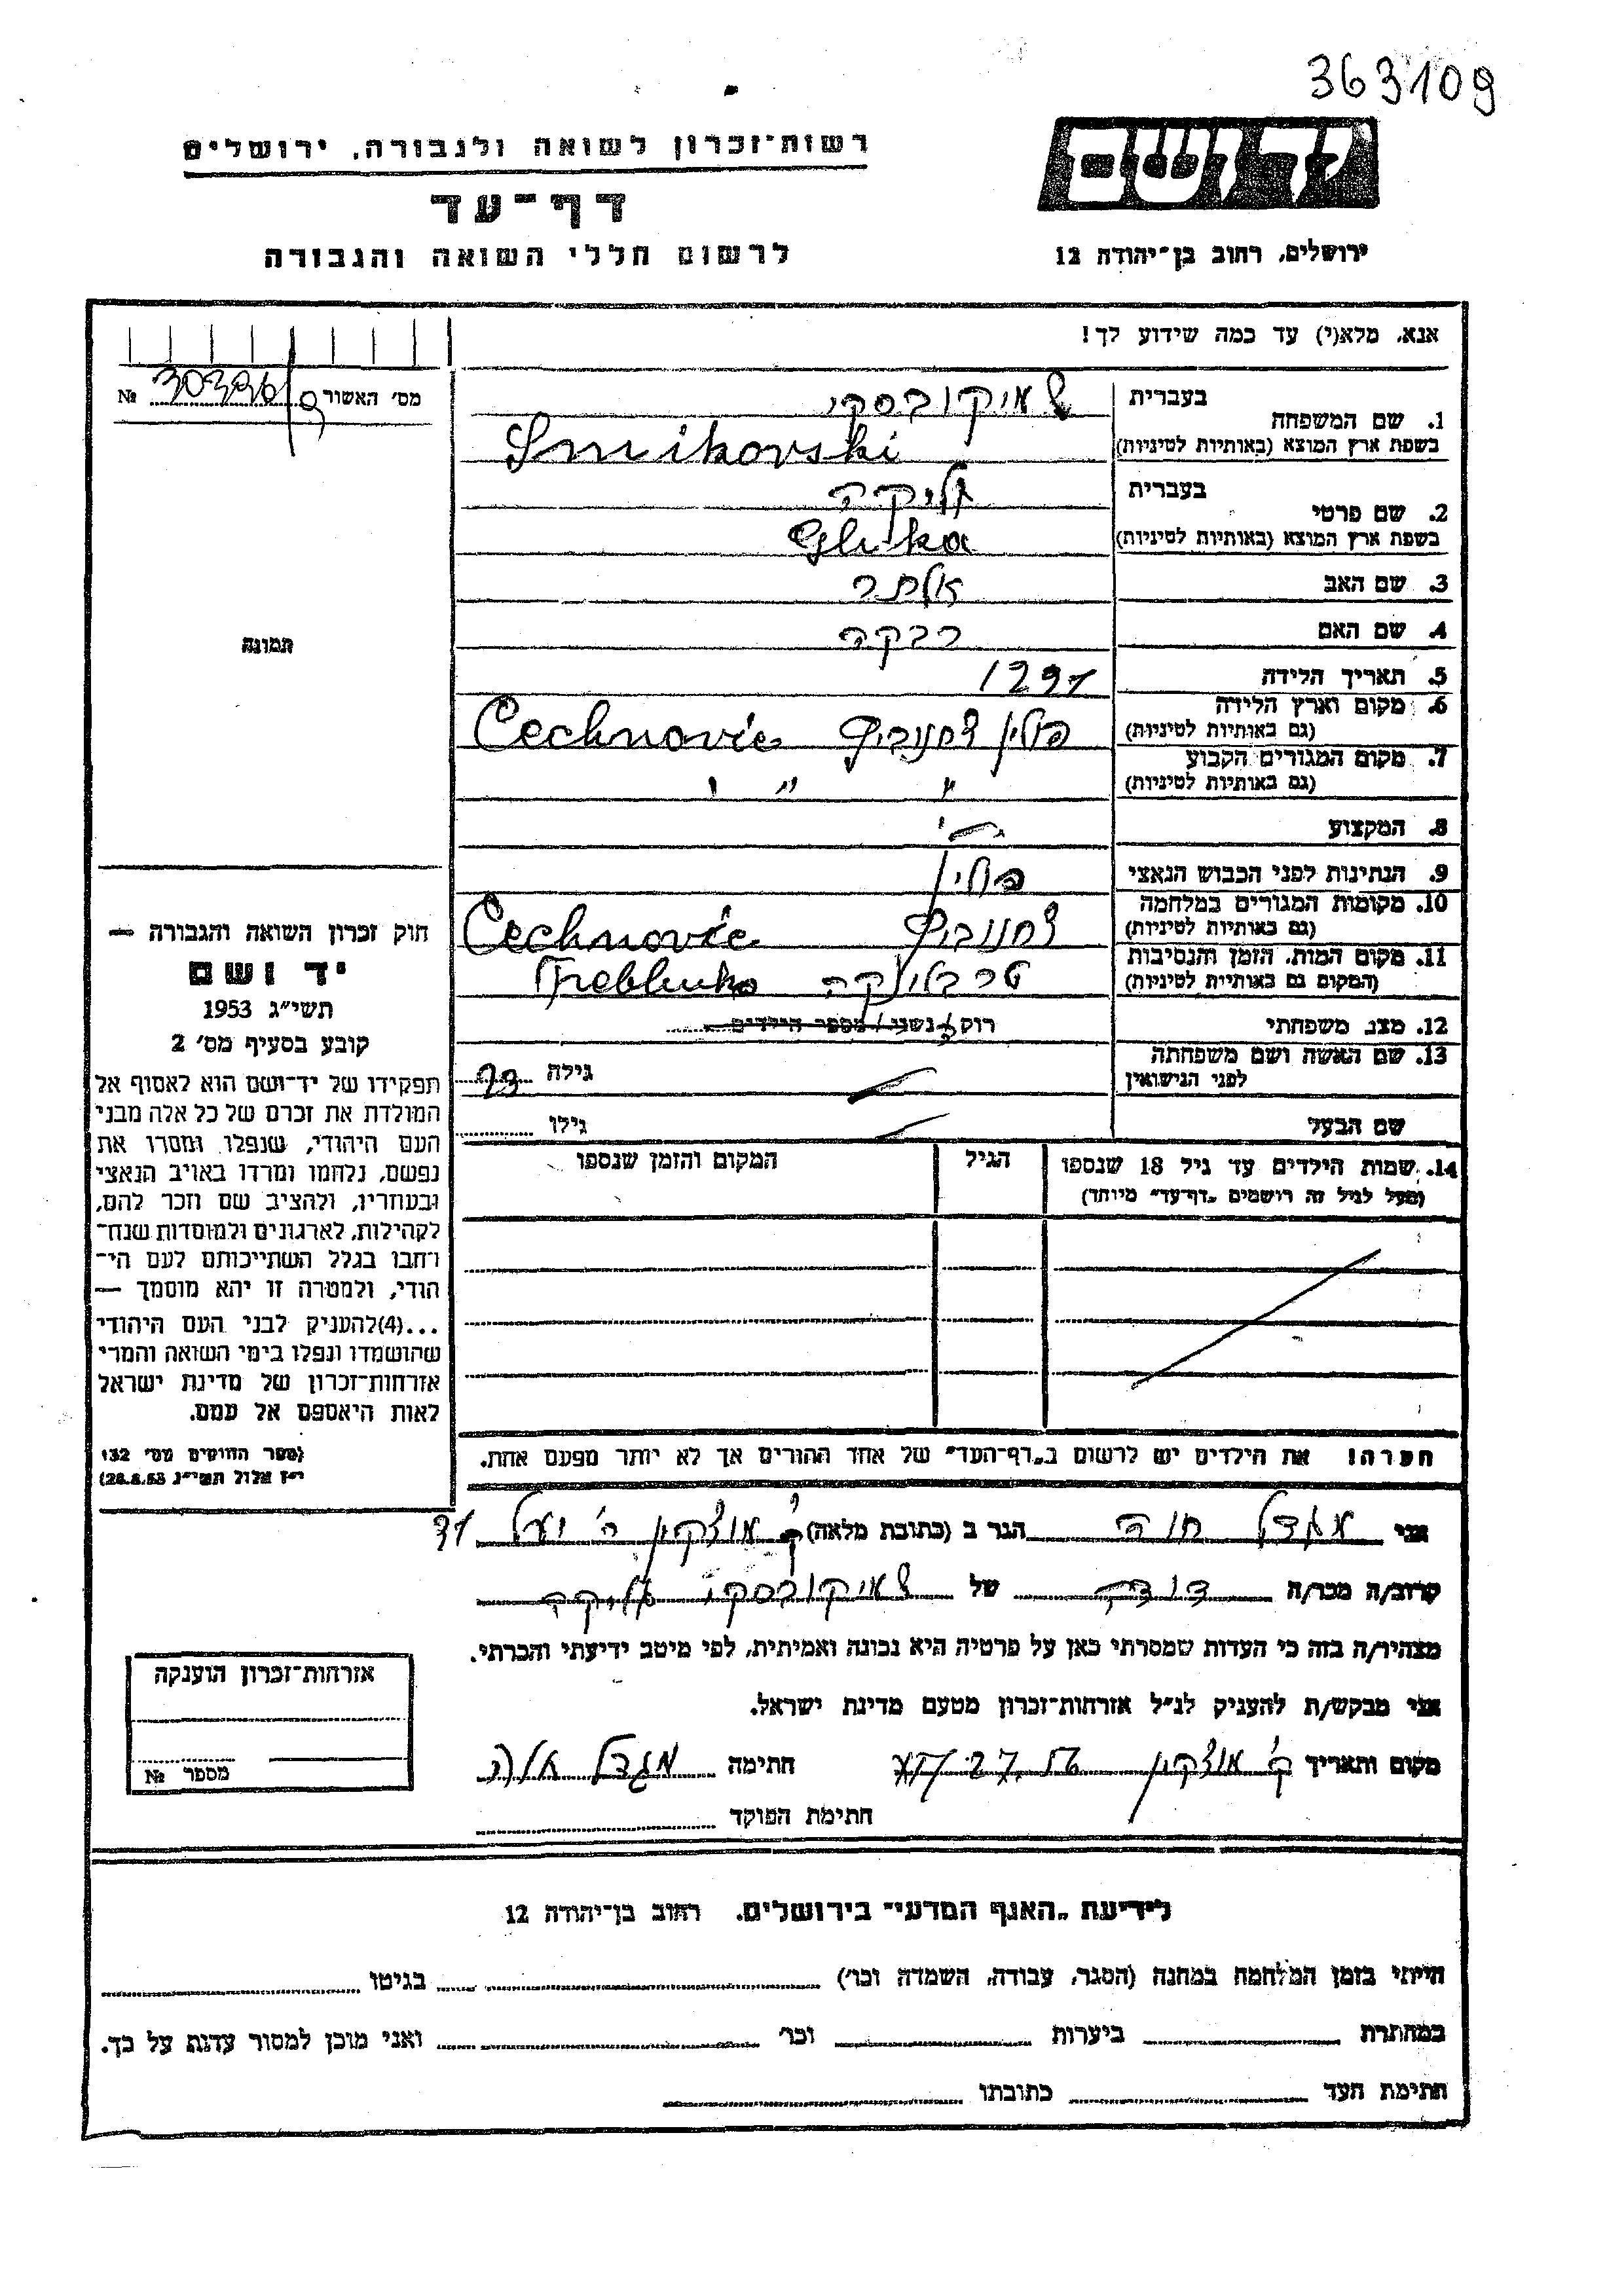 363109
רשות־זכרון לשואה ולגבורה, ירושלים
דף־עד
לרשום חללי השואה והגבורה
יד ושם
ירושלים, רחוב בן־יהודה 12
אנא, מלא(י) עד כמה שידוע לך!
מס׳ האשור №
1. שם המשפחה
בעברית
בשפת ארץ המוצא (באותיות לטיניות) Smikovski
2. שם פרטי
בעברית גליקה
בשפת ארץ המוצא (באותיות לטיניות) Glika
3. שם האב אלתר
4. שם האם רבקה
5. תאריך הלידה
6. מקום וארץ הלידה
(גם באותיות לטיניות) פולין צחנוביץ Cechnovic
7. מקום המגורים הקבוע
(גם באותיות לטיניות) " " "
8. המקצוע
9. הנתינות לפני הכבוש הנאצי פולין
10. מקומות המגורים במלחמה
(גם באותיות לטיניות) צחנוביץ Cechnovic
11. מקום המות, הזמן והנסיבות
(המקום גם באותיות לטיניות) טרבלינקה Treblinka
12. מצב משפחתי רוק/ה נשוי / מספר הילדים
13. שם האשה ושם משפחתה
לפני הנישואין גילה
שם הבעל גילו
14. שמות הילדים עד גיל 18 שנספו הגיל המקום והזמן שנספו
(מעל לגיל זה רושמים „דף־עד״ מיוחד)
הערה! את הילדים יש לרשום ב„דף־העד״ של אחד ההורים אך לא יותר מפעם אחת.
תמונה
חוק זכרון השואה והגבורה —
יד ושם
תשי״ג 1953
קובע בסעיף מס׳ 2
תפקידו של יד־ושם הוא לאסוף אל
המולדת את זכרם של כל אלה מבני
העם היהודי, שנפלו ומסרו את
נפשם, נלחמו ומרדו באויב הנאצי
ובעוזריו, ולהציב שם וזכר להם,
לקהילות, לארגונים ולמוסדות שנח־
רבו בגלל השתייכותם לעם הי־
הודי, ולמטרה זו יהא מוסמך —
...(4)להעניק לבני העם היהודי
שהושמדו ונפלו בימי השואה והמרי
אזרחות־זכרון של מדינת ישראל
לאות היאספם אל עמם.
(ספר החוקים מס׳ 132
י״ז אלול תשי״ג 28.8.53)
אני מגדל חוה הגר ב (כתובת מלאה) ק׳ מוצקין
קרוב/ה מכר/ה דודה של שמיקובסקי גליקה
מצהיר/ה בזה כי העדות שמסרתי כאן על פרטיה היא נכונה ואמיתית, לפי מיטב ידיעתי והכרתי.
אני מבקש/ת להעניק לנ״ל אזרחות־זכרון מטעם מדינת ישראל.
מקום ותאריך ק׳ מוצקין חתימה מגדל
חתימת הפוקד
אזרחות־זכרון הוענקה
מספר №
לידיעת „האגף המדעי״ בירושלים, רחוב בן־יהודה 12
הייתי בזמן המלחמה במחנה (הסגר, עבודה, השמדה וכו׳) בגיטו
במחתרת ביערות וכו׳ ואני מוכן למסור עדות על כך.
חתימת העד כתובתו